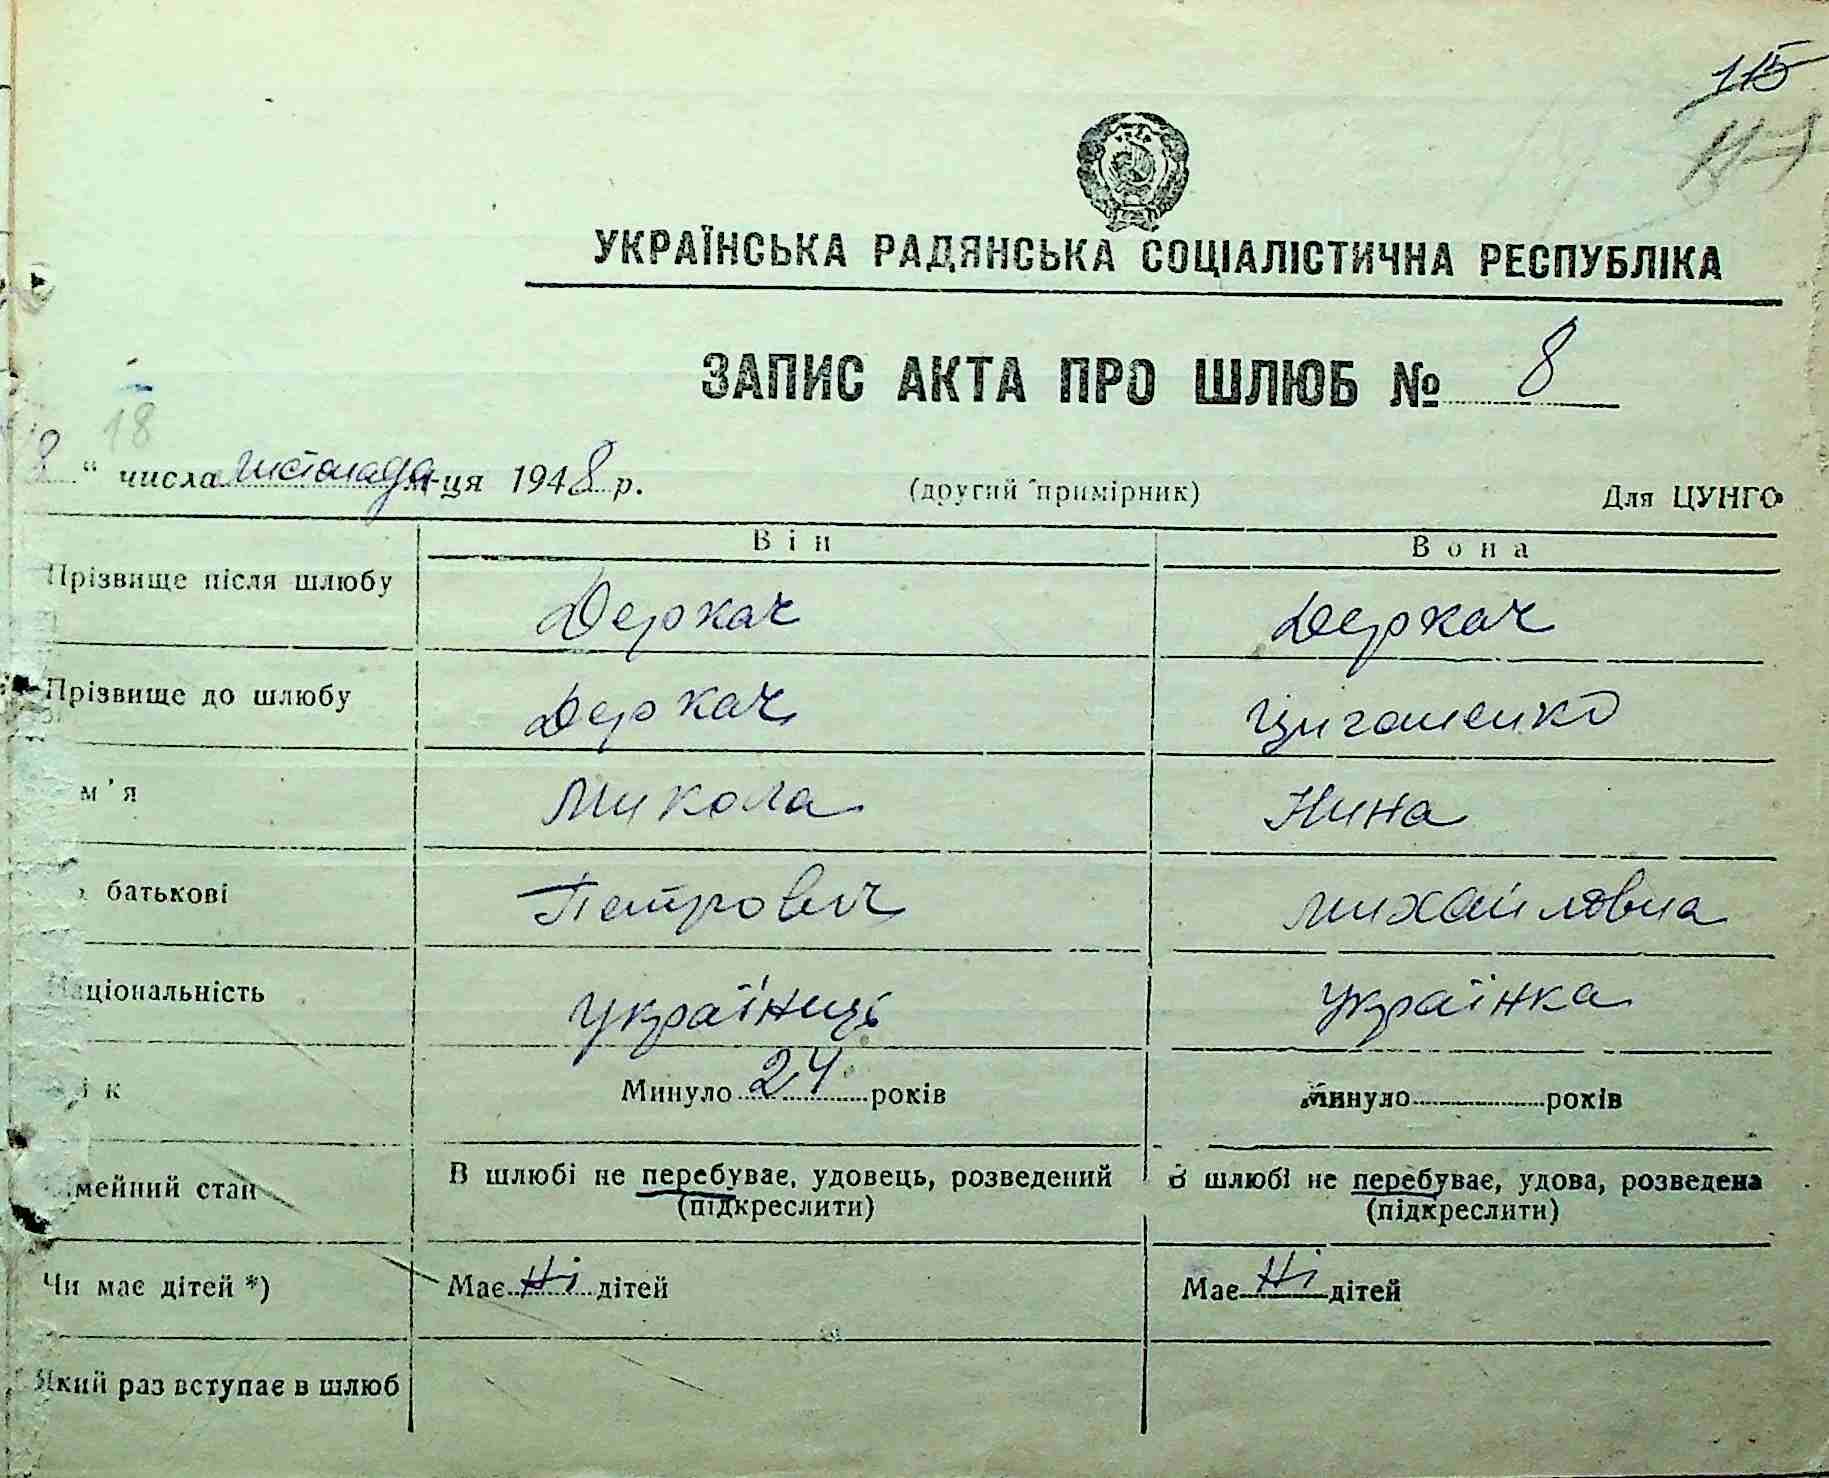 115
117
УКРАЇНСЬКА РАДЯНСЬКА СОЦІАЛІСТИЧНА РЕСПУБЛІКА
ЗАПИС АКТА ПРО ШЛЮБ № 8
18
8 " числа листопада м-ця 1948 р. (другий примірник) Для ЦУНГО
Він Вона
Прізвище після шлюбу Деркач Деркач
Прізвище до шлюбу Деркач Циганенко
м'я Микола Нина
батькові Петрович Михайловна
Національність Українець Українка
ік Минуло 24 років Минуло років
мейний стан В шлюбі не перебуває, удовець, розведений В шлюбі не перебуває, удова, розведена
(підкреслити) (підкреслити)
Чи має дітей *) Має Ні дітей Має Ні дітей
Який раз вступає в шлюб